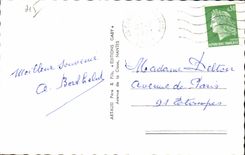 Meilleur souvenir
Co. Berthelot
ARTAUD Père & Fils - EDITIONS GABY
Avenue de la Gare, NANTES
0,30
REPUBLIQUE FRANCAISE
Madame Delton
Avenue de Paris
91 Etampes